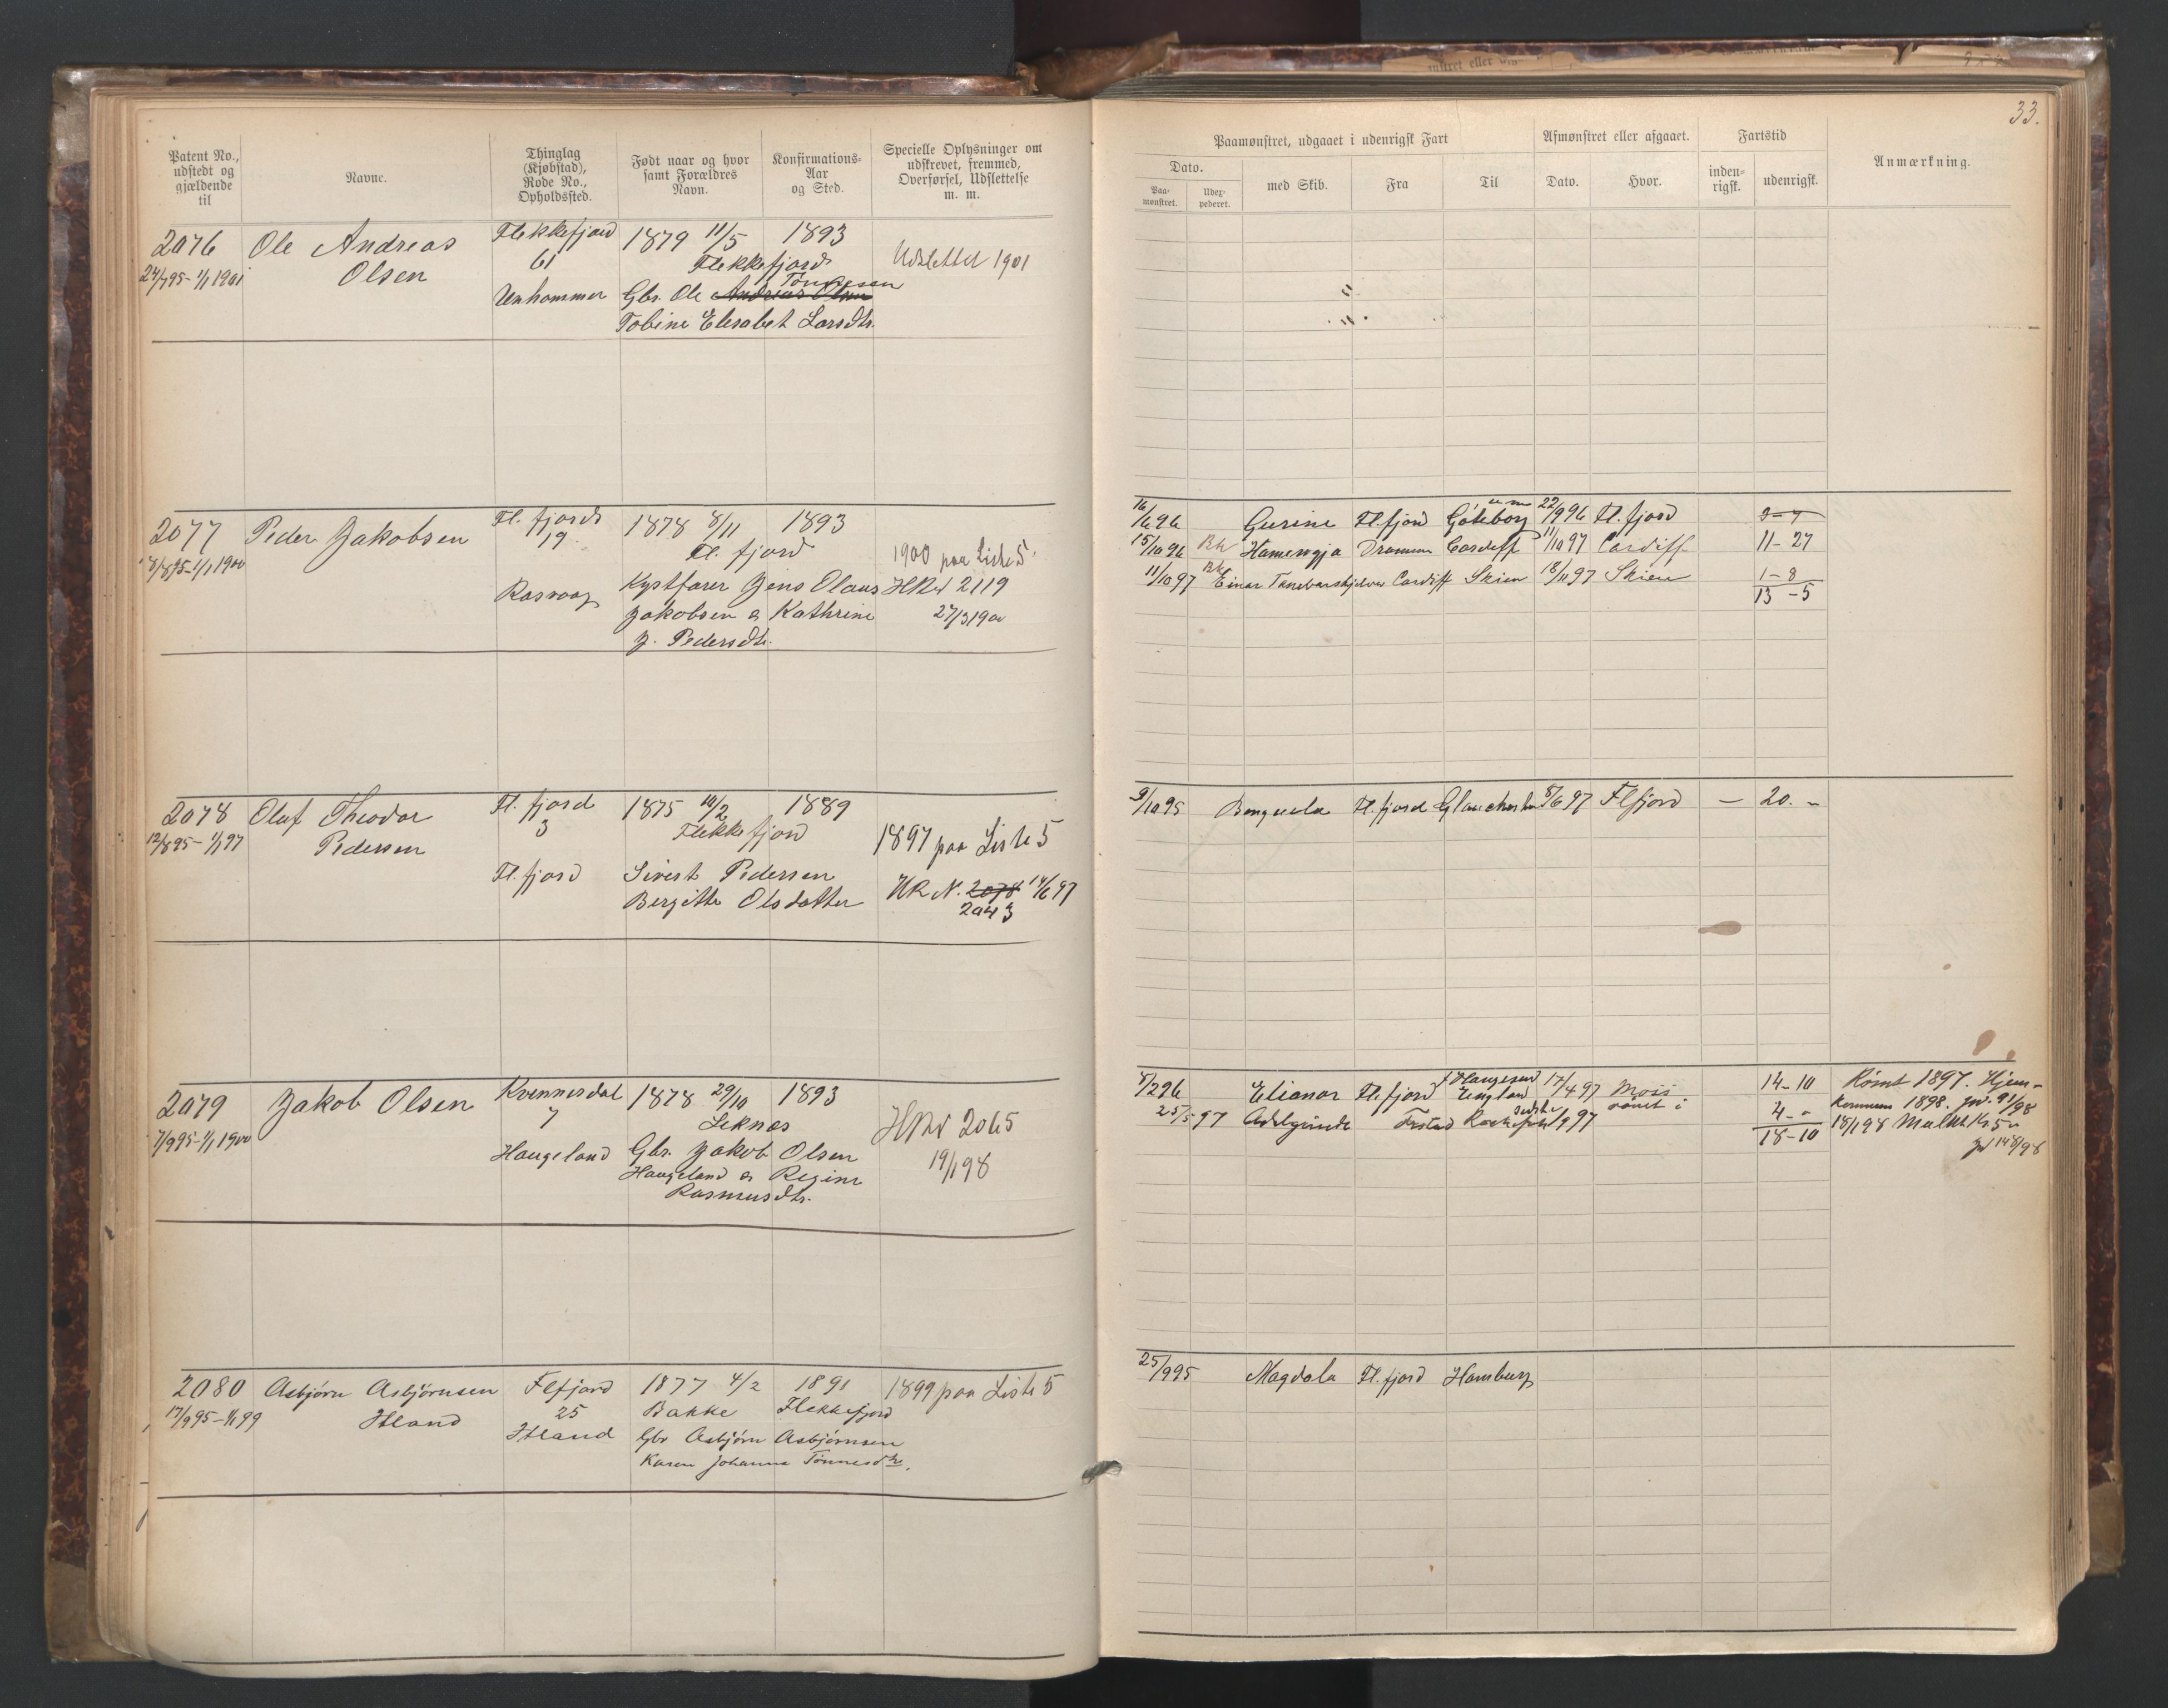 33.
Patent No., udstedt og gjældende til
Navne.
Thinglag (Kjøbstad), Rode No., Opholdssted.
Født naar og hvor samt Forældres Navn.
Konfirmations-Aar og Sted.
Specielle Oplysninger om udskrevet, fremmed, Overførsel, Udslettelse m. m.
Paamønstret, udgaaet i udenrigsk Fart
Dato.
Paa-mønstret.
Udex-pederet.
med Skib.
Fra
Til
Afmønstret eller afgaaet.
Dato.
Hvor.
Fartstid
inden-rigsk.
udenrigsk.
Anmærkning.
2076 Ole Andreas Flekkefjord 1879 11/5 1893
24/7 95 - 1/1 1901 Olsen 61 Flekkefjord Udslettet 1901
Tønnesen
Unhammer Gbr. Ole Andreas Olsen
Tobine Elisabet Larsdtr.
"
"
2077 Peder Jakobsen Fl. fjord 1878 8/11 1893
8/8 95 - 1/1 1900 19 Fl. fjord 1900 paa Liste 5
Rasvaag Kystfarer Jens Olaus HRN 2119
Jakobsen & Kathrine 27/3 1900
J. Pedersdtr.
16/6 96 Gurine Fl. fjord Göteborg 22/9 96 Fl. fjord
15/10 96 Bk Drammen Cardiff 11/10 97 Cardiff 11-27
11/10 97 Bk Einar Tambarskjelver Cardiff Skien 18/11 97 Skien 1-8
13-5
2078 Olaf Theodor Fl. fjord 1875 10/2 1889
12/8 95 - 1/1 97 Pedersen 3 Flekkefjord 1897 paa Liste 5
Fl. fjord Sivert Pedersen
Bergitte Olsdatter HR N. 2078 14/6 97
2043
9/10 95 Benguela Fl. fjord 8/6 97 Flfjord - 20. -
2079 Jakob Olsen Kvinnesdal 1878 29/10 1893
7/9 95 - 1/1 1900 7 Leknes HRN 2065
Haugeland Gbr. Jakob Olsen 19/1 98
Haugeland & Regine
Rasmusdtr.
8/2 96 Elianor Fl. fjord Haugesund England 17/4 97 Moss 14-10 Rømt 1897. Hjem-
25/5 97 Adelgunde 4-0 kommen 1898. 91/98
18-10 18/1 98 Mulkt Kr 5
148/98
2080 Asbjørn Asbjørnsen Flfjord 1877 4/2 1891 1899 paa Liste 5
17/9 95 - 1/1 99 Itland 25 Bakke Flekkefjord
Itland Gbr Asbjørn Asbjørnsen
Karen Johanna Tønnesdtr.
25/9 95 Magdala Fl. fjord Hamburg